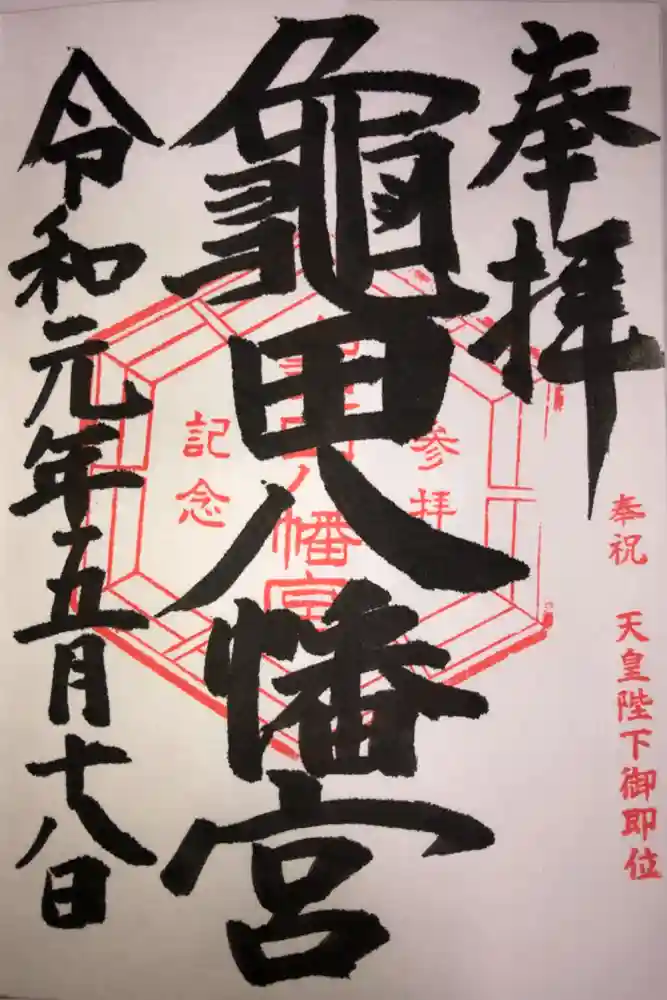 奉拝
奉祝 天皇陛下御即位
龜田八幡宮
参拝
八幡宮
記念
令和元年五月十八日